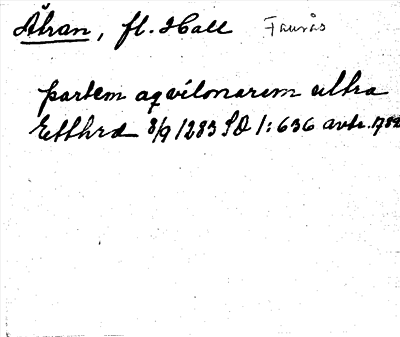 Ätran, fl. Hall Faurås
partem aqvilonarem ultra
Etthrd 8/9 1283 SD 1:636 avtr. 1782